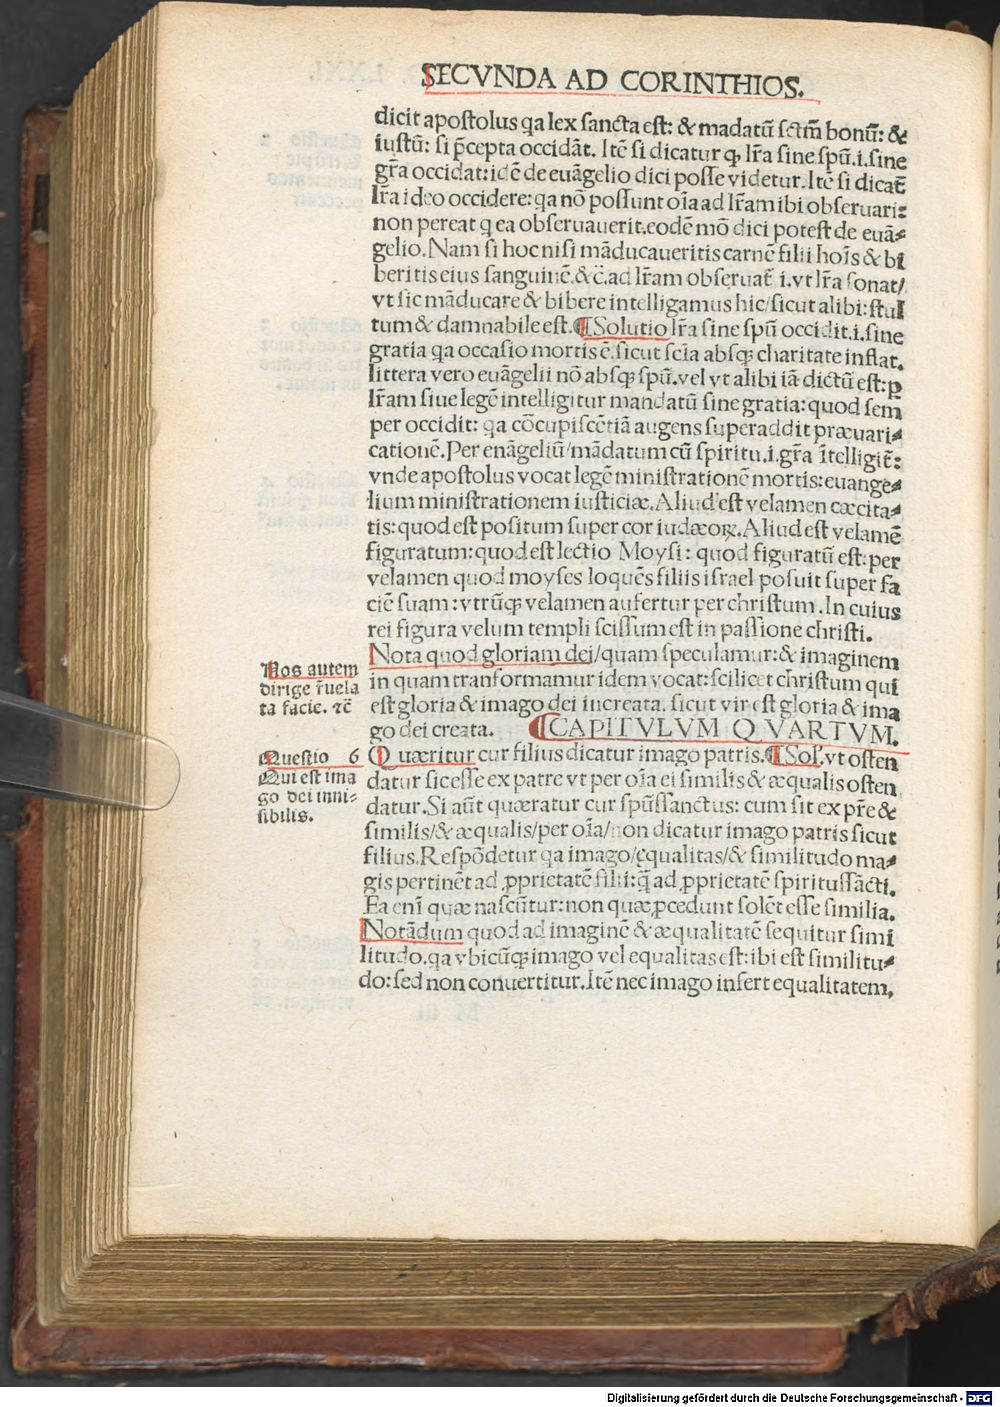 SECVNDA AD CORINTHIOS.
dicit apostolus qa lex sancta est: & mādatū sctm̄ bonū: &
iustū: si p̄cepta occidāt. Itē si dicatur ꝙ lr̄a sine spū.i.sine
gr̄a occidat: idē de euāgelio dici posse videtur. Itē si dicat̄
lr̄a ideo occidere: qa nō possunt oīa ad lr̄am ibi obseruari:
non pereat q ea obseruauerit.eodē mō dici potest de euā⸗
gelio. Nam si hoc nisi māducaueritis carnē filii hoīs & bi
beritis eius sanguinē.&c̄.ad lr̄am obseruat̄ i.vt lr̄a sonat/
vt sic māducare & bibere intelligamus hic/sicut alibi: stul
tum & damnabile est. ¶Solutio lr̄a sine spū occidit.i.sine
gratia qa occasio mortis ē.sicut scīa absqꝫ charitate inflat.
littera vero euāgelii nō absqꝫ spū.vel vt alibi iā dictū est: ꝑ
lr̄am siue legē intelligitur mandatū sine gratia: quod sem
per occidit: qa cōcupiscētiā augens superaddit præuari⸗
cationē. Per enāgeliū/mādatum cū spiritu.i.gr̄a ītelligit̄:
vnde apostolus vocat legē ministrationē mortis: euange⸗
lium ministrationem iusticiæ. Aliud est velamen cæcita⸗
tis: quod est positum super cor iudæoꝝ. Aliud est velamē
figuratum: quod est lectio Moysi: quod figuratū est: per
velamen quod moyses loquēs filiis israel posuit super fa
ciē suam: vtrūqꝫ velamen aufertur per christum. In cuius
rei figura velum templi scissum est in passione christi.
Nota quod gloriam dei/quam speculamur: & imaginem
in quam tranformamur idem vocat: scilicet christum qui
est gloria & imago dei increata. sicut vir est gloria & ima
go dei creata. ¶CAPITVLVM QVARTVM.
Quæritur cur filius dicatur imago patris. ¶Sol'.vt osten
datur sic esse ex patre vt per oīa ei similis & æqualis osten
datur. Si aūt quæratur cur spūssanctus: cum sit ex pr̄e &
similis/& æqualis/per oīa/non dicatur imago patris sicut
filius. Respōdetur qa imago/ęqualitas/& similitudo ma⸗
gis pertinēt ad ꝓprietatē filii: q̄ ad ꝓprietatē spiritussācti.
Ea enī quæ nascūtur: non quæ ꝓcedunt solēt esse similia.
Notādum quod ad imaginē & æqualitatē sequitur simi
litudo.qa vbicūqꝫ imago vel equalitas est: ibi est similitu⸗
do: sed non conuertitur. Itē nec imago infert equalitatem,
Nos autem
dirige r̄uela
ta facie. ⁊c̄
Questio 6
Qui est ima
go dei inui⸗
sibilis.
Digitalisierung gefördert durch die Deutsche Forschungsgemeinschaft - DFG